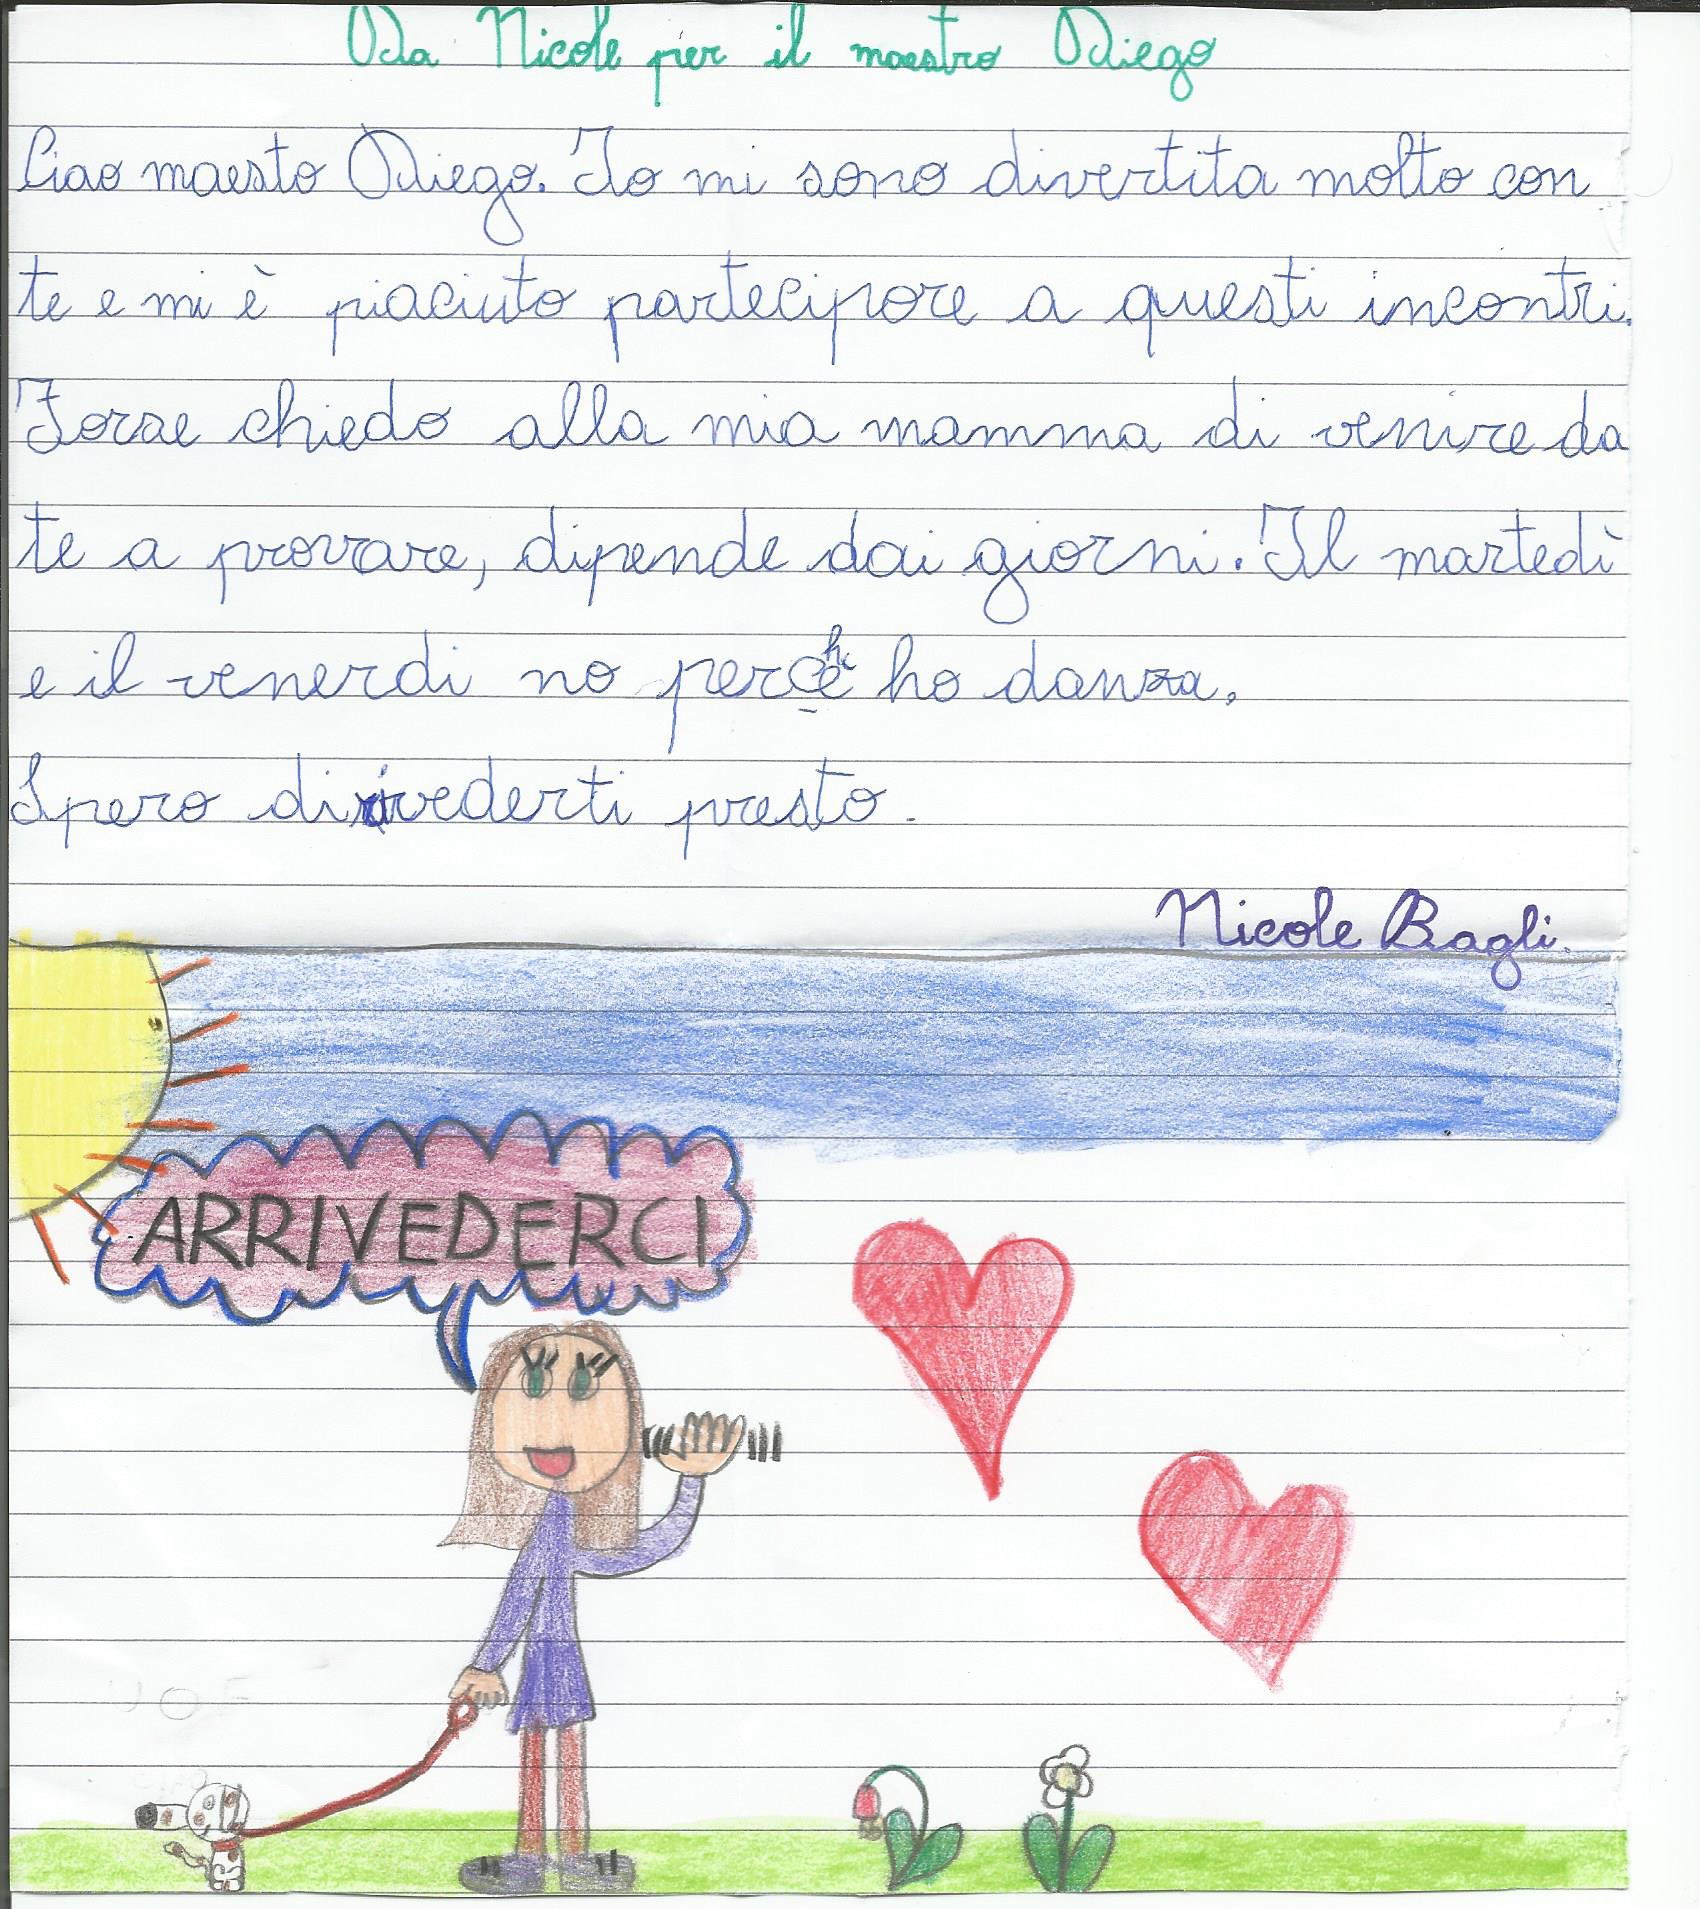 Da Nicole per il maestro Diego
Ciao maesto Diego. Io mi sono divertita molto con
te e mi è piaciuto partecipare a questi incontri.
Forse chiedo alla mia mamma di venire da
te a provare, dipende dai giorni. Il martedì
e il venerdi no perchè ho danza.
Spero di rivederti presto.
Nicole Bagli.
ARRIVEDERCI